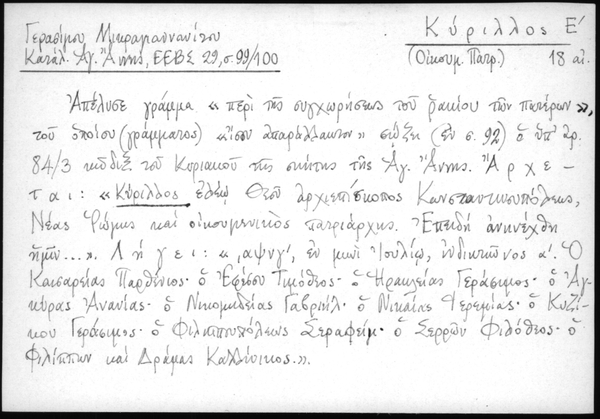 Γερασίμου Μικραγιαννανίτου
Κατάλ. Ἁγ. Ἄννης, ΕΕΒΣ 29, σ. 99/100
Κύριλλος Ε΄
(Οἰκουμ. Πατρ.) 18 αἰ.
Ἀπέλυσε γράμμα «περὶ τῆς συγχωρήσεως τοῦ δακίου τῶν πατέρων»,
τοῦ ὁποίου (γράμματος) «ἴσον ἀπαράλλακτον» σῴζει (ἐν σ. 92) ὁ ὑπ' ἀρ.
84/3 κῶδιξ τοῦ Κυριακοῦ τῆς σκήτης τῆς Ἁγ. Ἄννης. Ἄρχε-
ται: «Κύριλλος ἐλέῳ Θεοῦ ἀρχιεπίσκοπος Κωνσταντινουπόλεως,
Νέας Ῥώμης καὶ οἰκουμενικὸς πατριάρχης. Ἐπειδὴ ἀνηνέχθη
ἡμῖν...». Λήγει: «͵αψνγ΄, ἐν μηνὶ Ἰουλίῳ, ἰνδικτιῶνος α΄. Ὁ
Καισαρείας Παρθένιος· ὁ Ἐφέσου Τιμόθεος· ὁ Ἡρακλείας Γεράσιμος· ὁ Ἀγ-
κύρας Ἀνανίας· ὁ Νικομηδείας Γαβριήλ· ὁ Νικαίας Ἱερεμίας· ὁ Κυζί-
κου Γεράσιμος· ὁ Φιλιππουπόλεως Σεραφείμ· ὁ Σερρῶν Φιλόθεος· ὁ
Φιλίππων καὶ Δράμας Καλλίνικος».